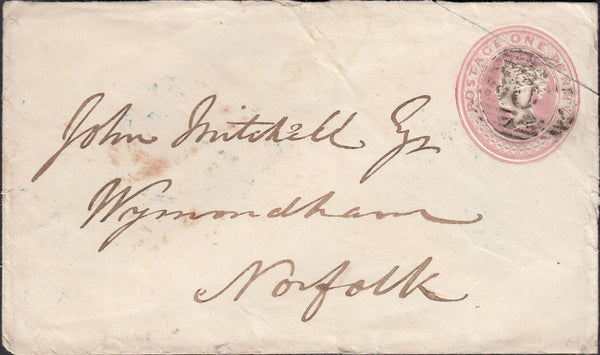 POSTAGE ONE PENNY
John Mitchell Esq
Wymondham
Norfolk